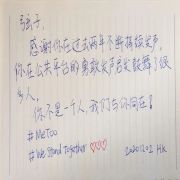 弦子,
感谢你在过去两年不断持续发声,
你在公共平台的勇敢发声启发鼓舞了很
多人,
你不是一个人,我们与你同在!
#MeToo
#We Stand Together ♡♡♡
2020.12.2 HK